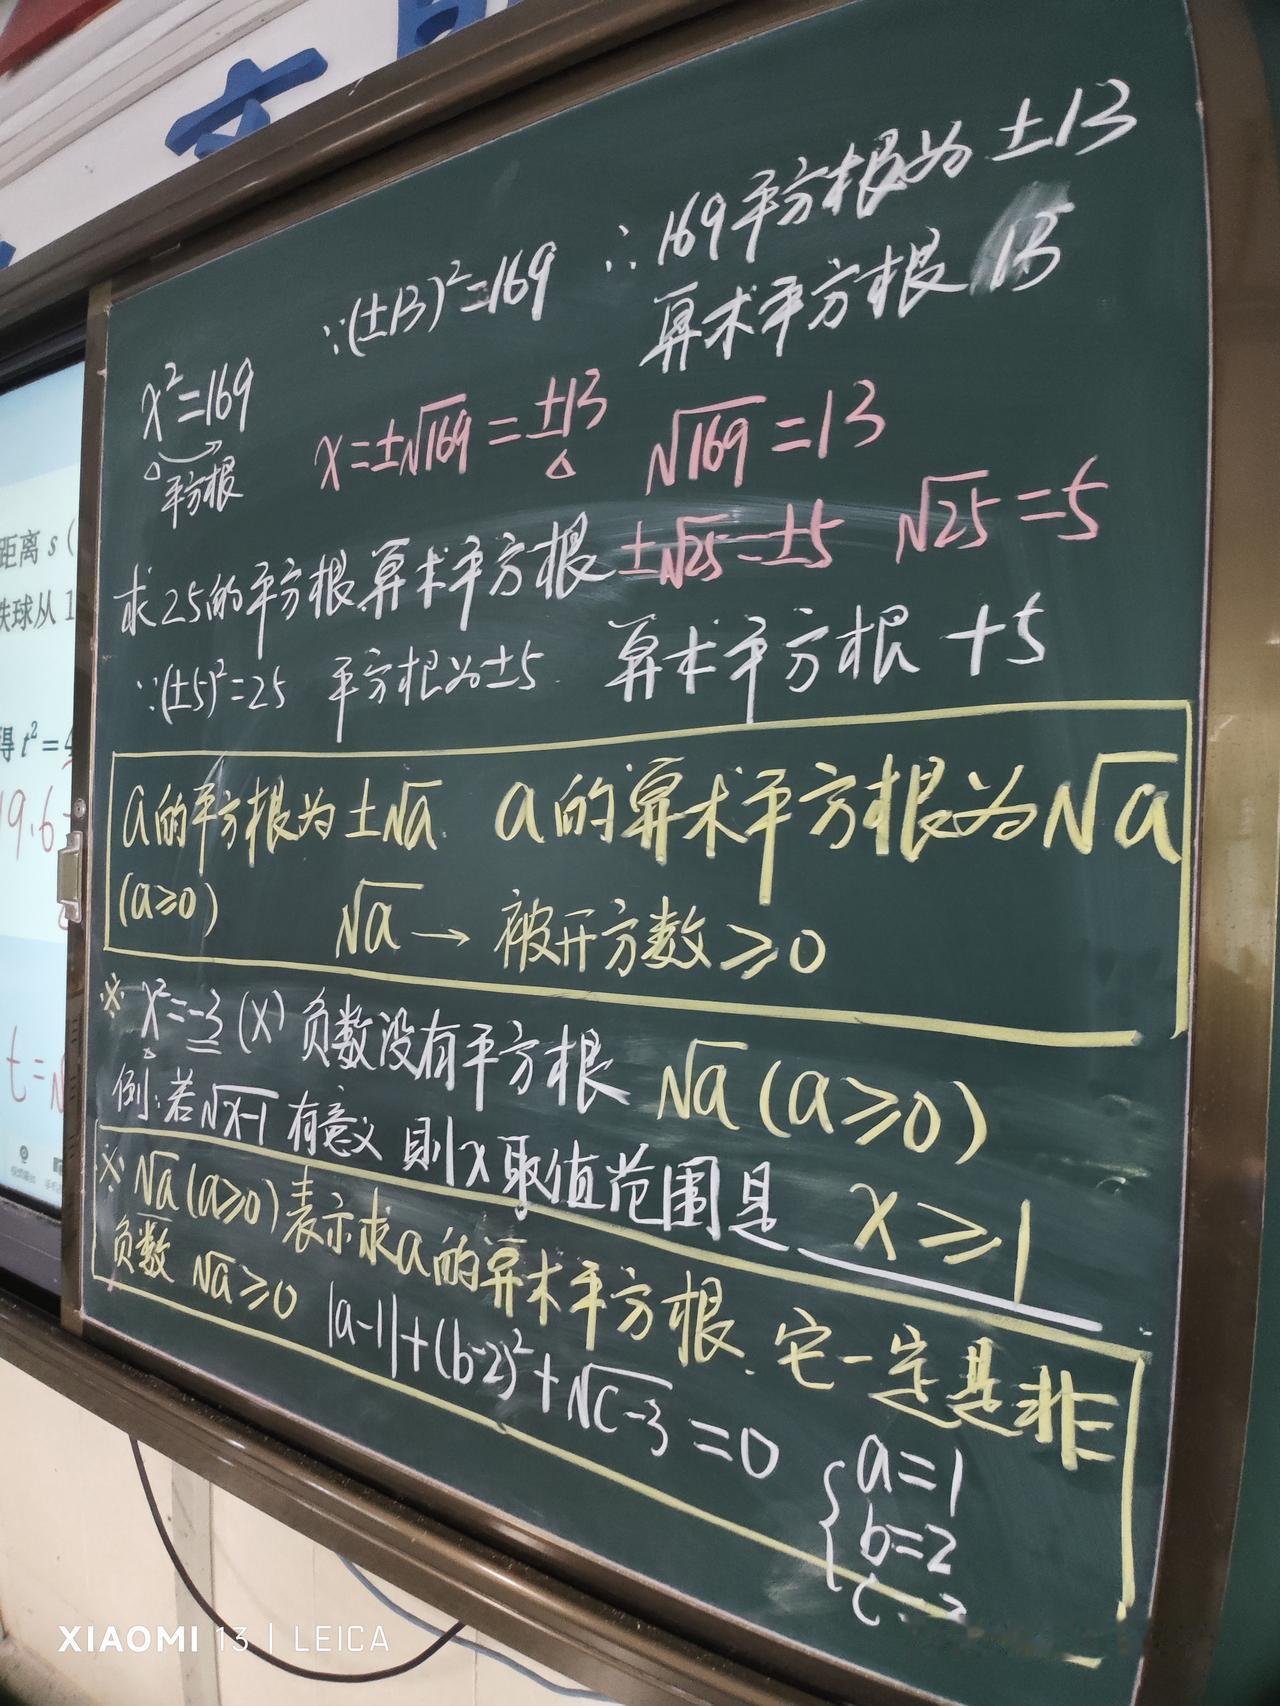 文
∵(±13)²=169 ∴169平方根为±13
算术平方根 13
x²=169
平方根
x=±√169=±13 √169=13
求25的平方根,算术平方根 ±√25=±5 √25=5
∵(±5)²=25 平方根为±5. 算术平方根 +5
a的平方根为±√a. a的算术平方根为√a
(a≥0) √a → 被开方数≥0
※ x²=-3 (×) 负数没有平方根 √a (a≥0)
例:若√x-1 有意义 则x取值范围是 x≥1
※ √a (a≥0) 表示求a的算术平方根. 它一定是非
负数 √a≥0 |a-1|+(b-2)²+√c-3=0
a=1
b=2
距离 s (
铁球从 1
得 t²=4
19.6
t=√
XIAOMI 13 | LEICA